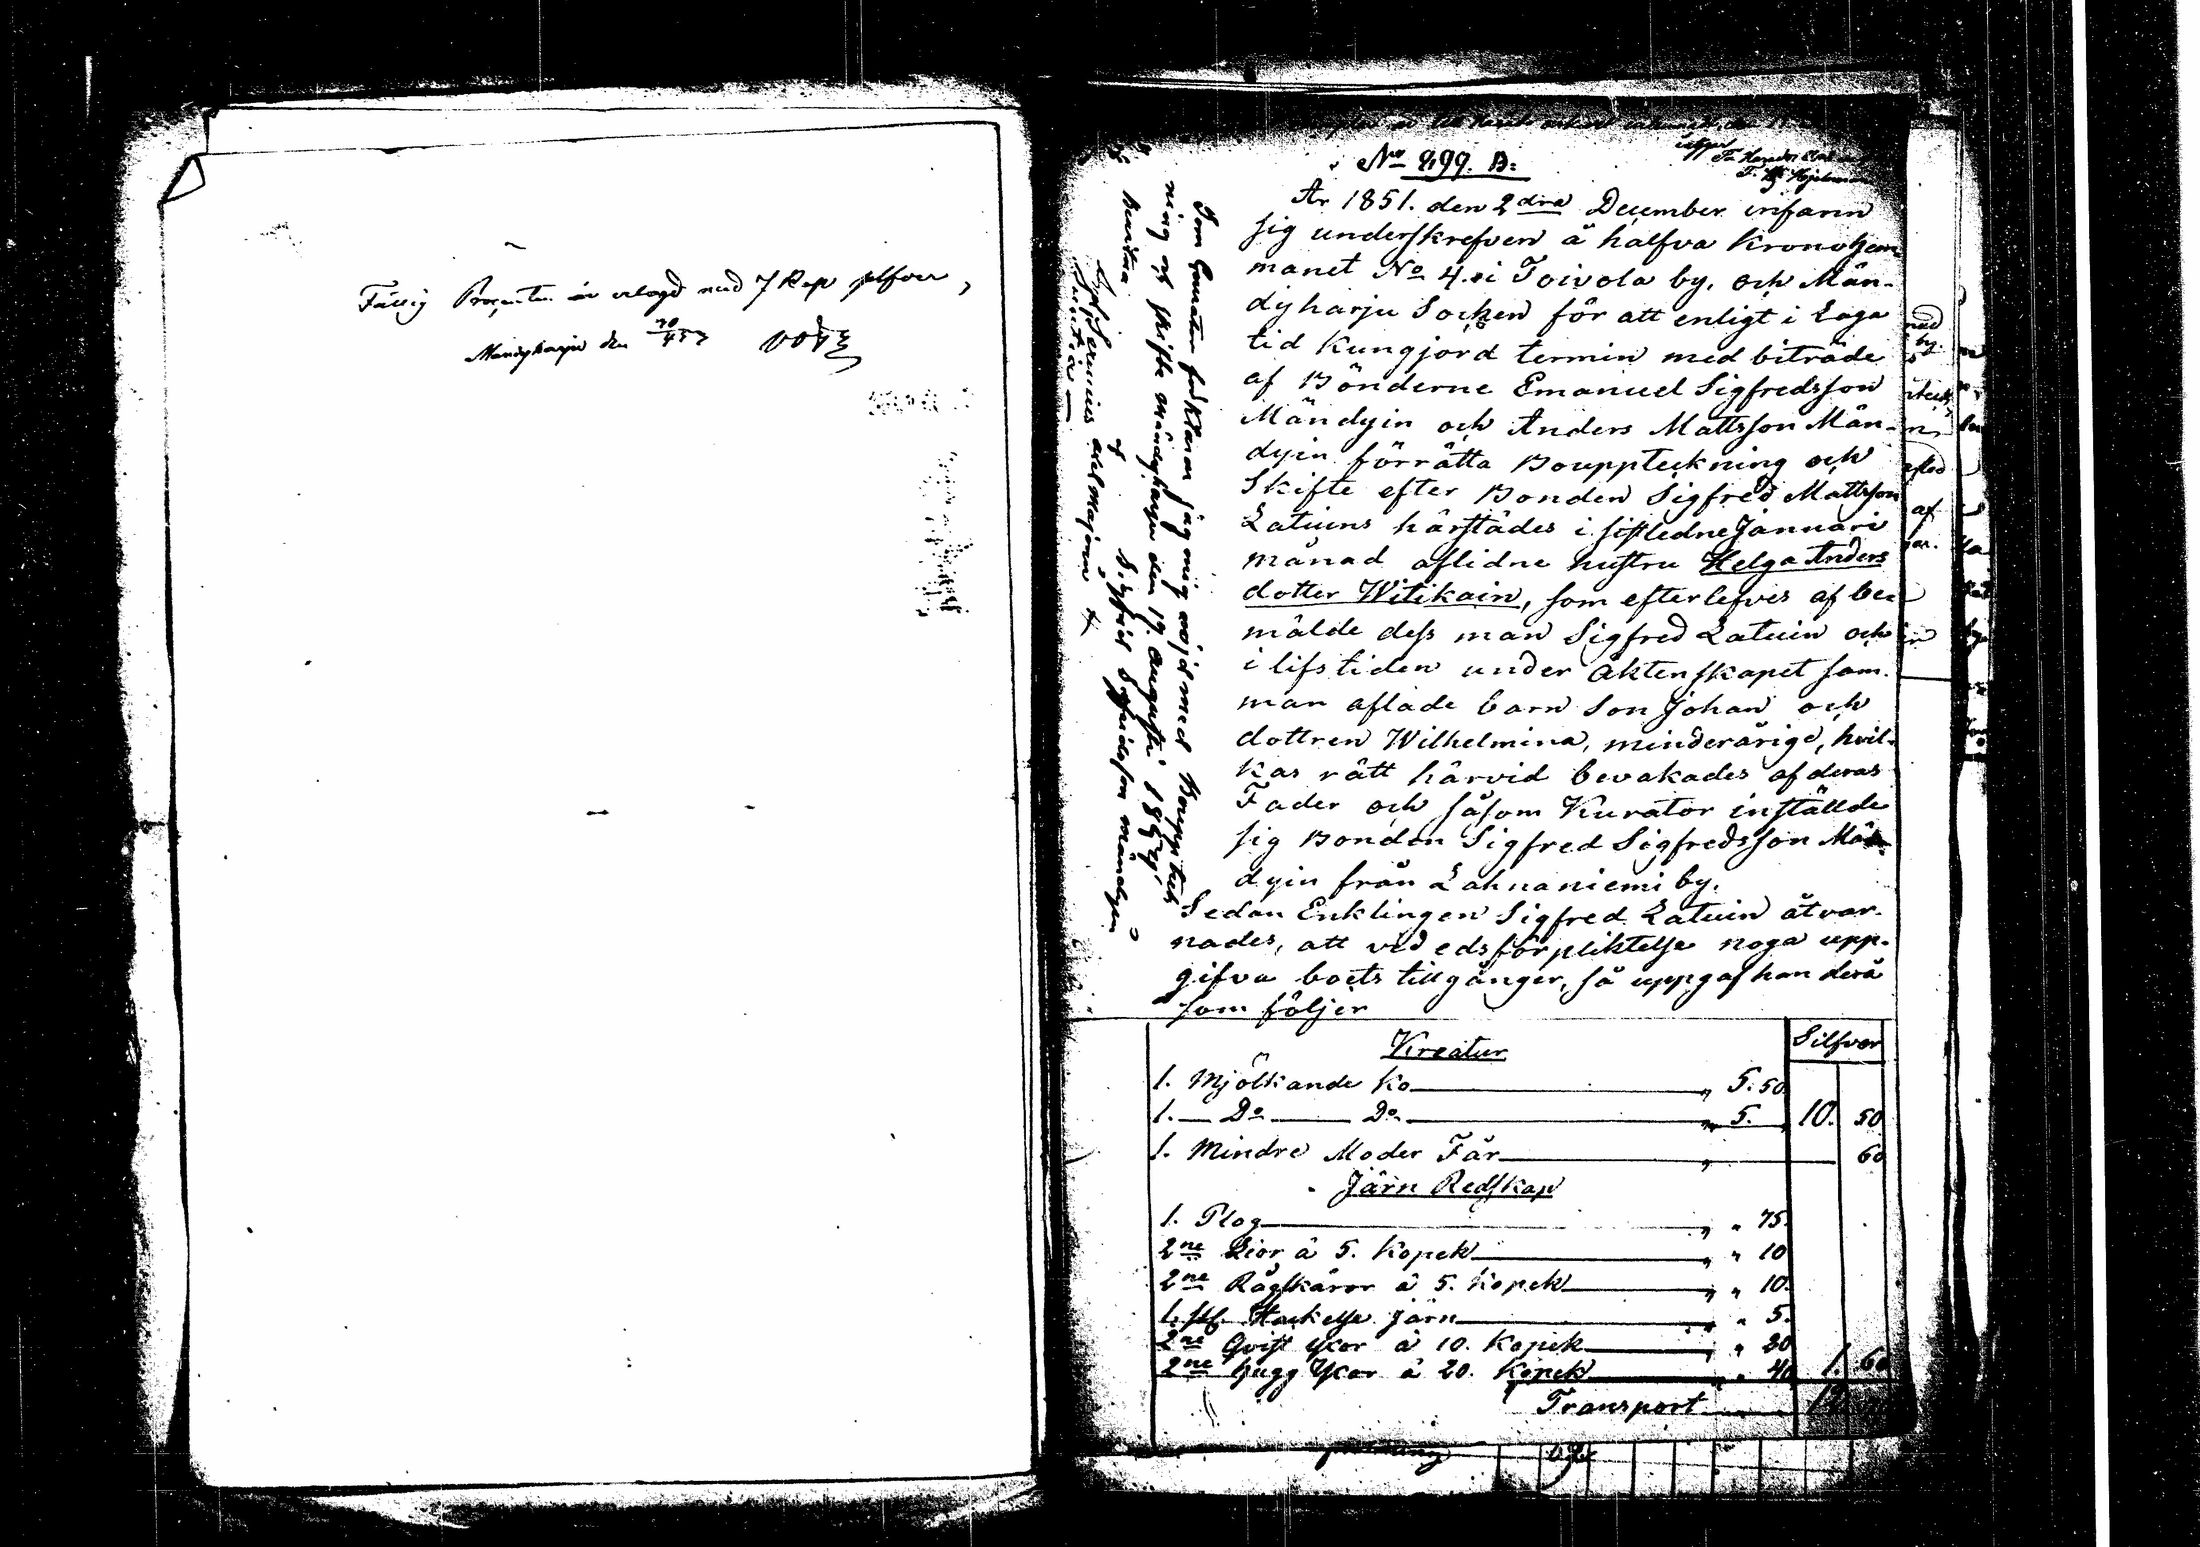 Fattig Procenten är erlagd med 7 Kop silfver,
Mändyharju den
No 499. B:
År 1851. den 2dra December infann
sig underskrefven å halfva Kronohem
manet No 4. i Toivola by, och Män-
dyharju Socken för att enligt i Laga
tid Kungjord termin med biträde
af Bönderne Emanuel Sigfredsson
Mändyin och Anders Mattsson Män-
dyin förrätta Bouppteckning och
Skifte efter Bonden Sigfred Mattsson
Latuins härstädes i sistledne Januari
månad aflidne hustru Helga Anders
dotter Witikain, som efterlefves af be-
mälde dess man Sigfred Latuin och
i lifstiden under äktenskapet sam-
man aflade barn Son Johan och
dottren Wilhelmina, minderårige, hvil-
kas rätt härvid bevakades af deras
Fader och såsom Kurator inställde
sig Bonden Sigfred Sigfredsson Män-
dyin från Lahnaniemi by.
Sedan Enklingen Sigfred Latuin åtvar-
nades, att vid edsförpliktelse noga upp-
gifva boets tillgånger, så uppgaf han derå
som följer
Silfver
Kreatur
1. Mjölkande Ko " 5. 50
1. Do Do " 5. 10. 50
1. Mindre Moder Får " 60
Järn Redskap
1. Plog " " 75.
2ne Lior à 5. Kopek " " 10
2ne Rågskäror à 5. Kopek " " 10.
1. st. Hackelse Järn " " 5.
2ne Qvist Yxor à 10. Kopek " " 20
2ne hugg Yxor à 20. Kopek " " 40 1. 60
Transport
Som Curator förklarar jag mig nöjd med Bouppteck
ning och skifte Mändyharju den 19. Augusti 1857,
Sigfrid Sigfridsson Mändyin